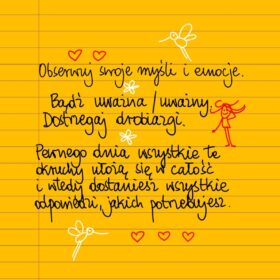 Obserwuj swoje myśli i emocje.
Bądź uważna/uważny.
Dostrzegaj drobiazgi.
Pewnego dnia wszystkie te
okruchy utoją się w całość
i wtedy dostaniesz wszystkie
odpowiedzi, jakich potrzebujesz.